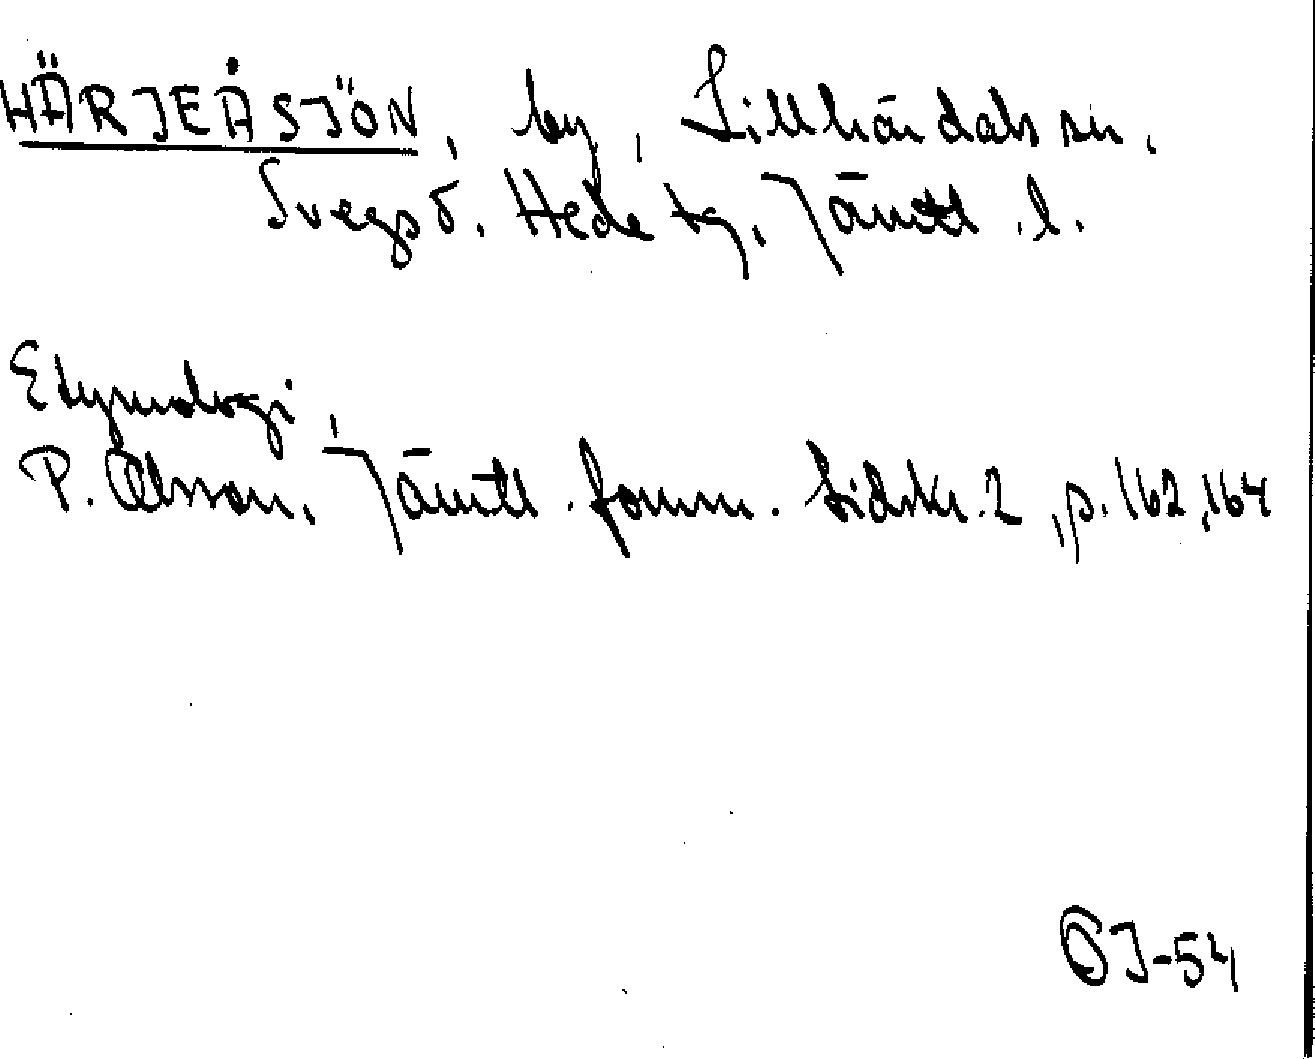 HÄRJEÅSJÖN, by, Lillhärdals sn.
Svegs d. Hede tg, Jämtl. l.
Etymologi,
P. Olsson, Jämtl. fornm. tidskr. 2, p. 162, 164
ÖJ-54